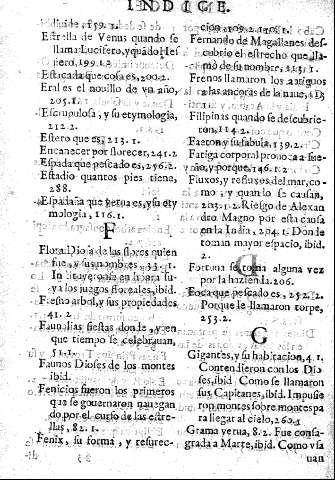 INDICE.
159. 3.
Estrella de Venus quando se
llama Lucifero, y quādo Hes
pero, 199. 1. 2
Estacada que cosa es, 200. 2.
Eral es el nouillo de vn año,
205. 1.
Escrupulosa, y su etymologia,
212. 2.
Estero que es, 213. 1.
Encanecer por florecer, 241. 2
Espada que pescado es, 256. 2.
Estadio quantos pies tiene,
288.
España que yerua es, y su ety
mologia, 116. 1.
F
Flora Diosa de las flores quien
fue, y sus nombres, 33. 1.
Instituyeronle en honra su-
ya los juegos florales, ibid.
Fresno arbol, y sus propiedades
41. 2.
Faunalias fiestas donde, y en
que tiempo se celebrauan,
51. 1.
Faunos Dioses de los montes
ibid.
Fenicios fueron los primeros
que se gouernaron nauegan
do por el curso de las estre-
llas, 82. 1.
Fenix, su forma, y resurec-
cion
Fernando de Magallanes des-
cubrio el estrecho que lla-
mò de su nombre, 113. 1.
Frenos llamaron los antiguos
a las ancoras de la naue,
Filipinas quando se descubrie-
ron, 114. 2.
Faeton y su fabula, 139. 2.
Fatiga corporal prouoca a sue-
ño, y porque, 146. 1. 2
Fluxos, y refluxos del mar, co-
mo, y quanto se causan,
203. 1. 2. Riesgo de Alexan
dro Magno por esta causa
en la India, 204. 1. Donde
toman mayor espacio, ibid.
2.
Fortuna se toma alguna vez
por la hazienda. 206.
Foca que pescado es, 252. 2.
Porque le llamaron torpe,
253. 2.
G
Gigantes, y su habitacion, 4. 1.
Contendieron con los Dio
ses, ibid Como se llamaron
sus Capitanes, ibid. Impusie
ron montes sobre montes pa
ra llegar al cielo, 260. 1
Grama yerua, 8. 2. Fue consa-
grada a Marte, ibid. Como vsa
uan